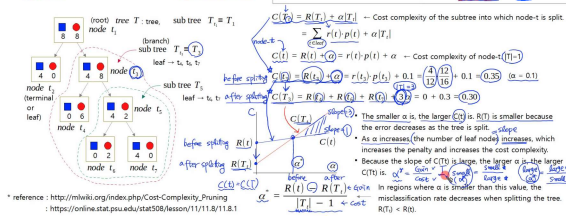 (root) tree T : tree, sub tree T_t₁ ≡ T₁
node t₁
8 8
(branch)
sub tree T_t₃ ≡ T₃
leaf → t₄, t₆, t₇
4 0
4 8
node t₃
node t₂
(terminal or leaf)
sub tree T₅
leaf → t₆, t₇
2 6
2 4
node t₅
node t₄
0 2
4 0
node t₆
node t₇
C(T_t) = R(T_t) + α|T_t| ← Cost complexity of the subtree into which node-t is split.
= ∑ r(t)·p(t) + α|T_t|
t∈leaf
node-t
C(t) = R(t) + α = r(t)·p(t) + α ← Cost complexity of node-t. |T|=1
before spliting C(t₃) = R(t₃) + α = r(t₃)·p(t₃) + 0.1 = 4/12 12/16 + 0.1 = 0.35 (α = 0.1)
after spliting C(T₃) = R(t₄) + R(t₆) + R(t₇) + 3α = 0 + 0.3 = 0.30
|T|=3
C
slope=3
C(T_t)
slope=1
C(t)
before spliting R(t)
after spliting R(T_t)
C(t)=C(T_t)
α* α
before after
α* = R(t) − R(T_t) / |T_t| − 1
← Gain
← cost
• The smaller α is, the larger C(t) is. R(T) is smaller because the error decreases as the tree is split.
• As α increases (the number of leaf nodes) increases, which increases the penalty and increases the cost complexity.
slope
• Because the slope of C(Tt) is large, the larger α is, the larger C(Tt) is. α* = Gain / Cost
In regions where α is smaller than this value, the misclassification rate decreases when splitting the tree. R(T₁) < R(t).
* reference : http://mlwiki.org/index.php/Cost-Complexity_Pruning
: https://online.stat.psu.edu/stat508/lesson/11/11.8/11.8.1